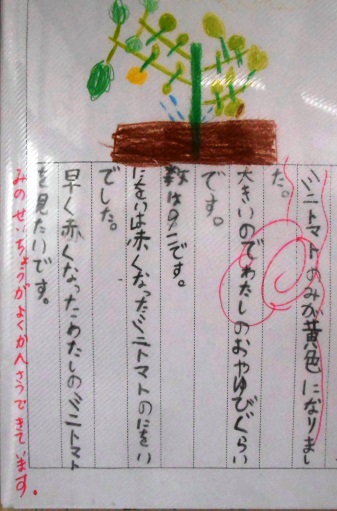 ミニトマトのみが黄色になりまし
た。
大きいのでわたしのおやゆびぐらい
です。
数は9こです。
においは赤くなったミニトマトのにをい
でした。
早く赤くなったわたしのミニトマト
を見たいです。
みのせいちょうがよくかんさつできています。